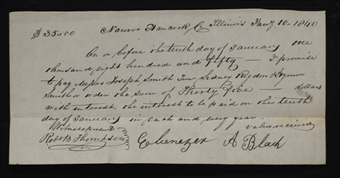 $ 35.00 Nauvoo Hancock Co Illinois Jany 10. 1840
On or before the tenth day of January one
thousand eight hundred and fifty — I promise
to pay Messrs Joseph Smith Junr Sidney Rigdon & Hyrum
Smith or order the sum of Thirty five dollars
with interest, the interest to be paid on the tenth
day of January in each and every year value received
Witness present
Robt B Thompson Ebenezer A Black